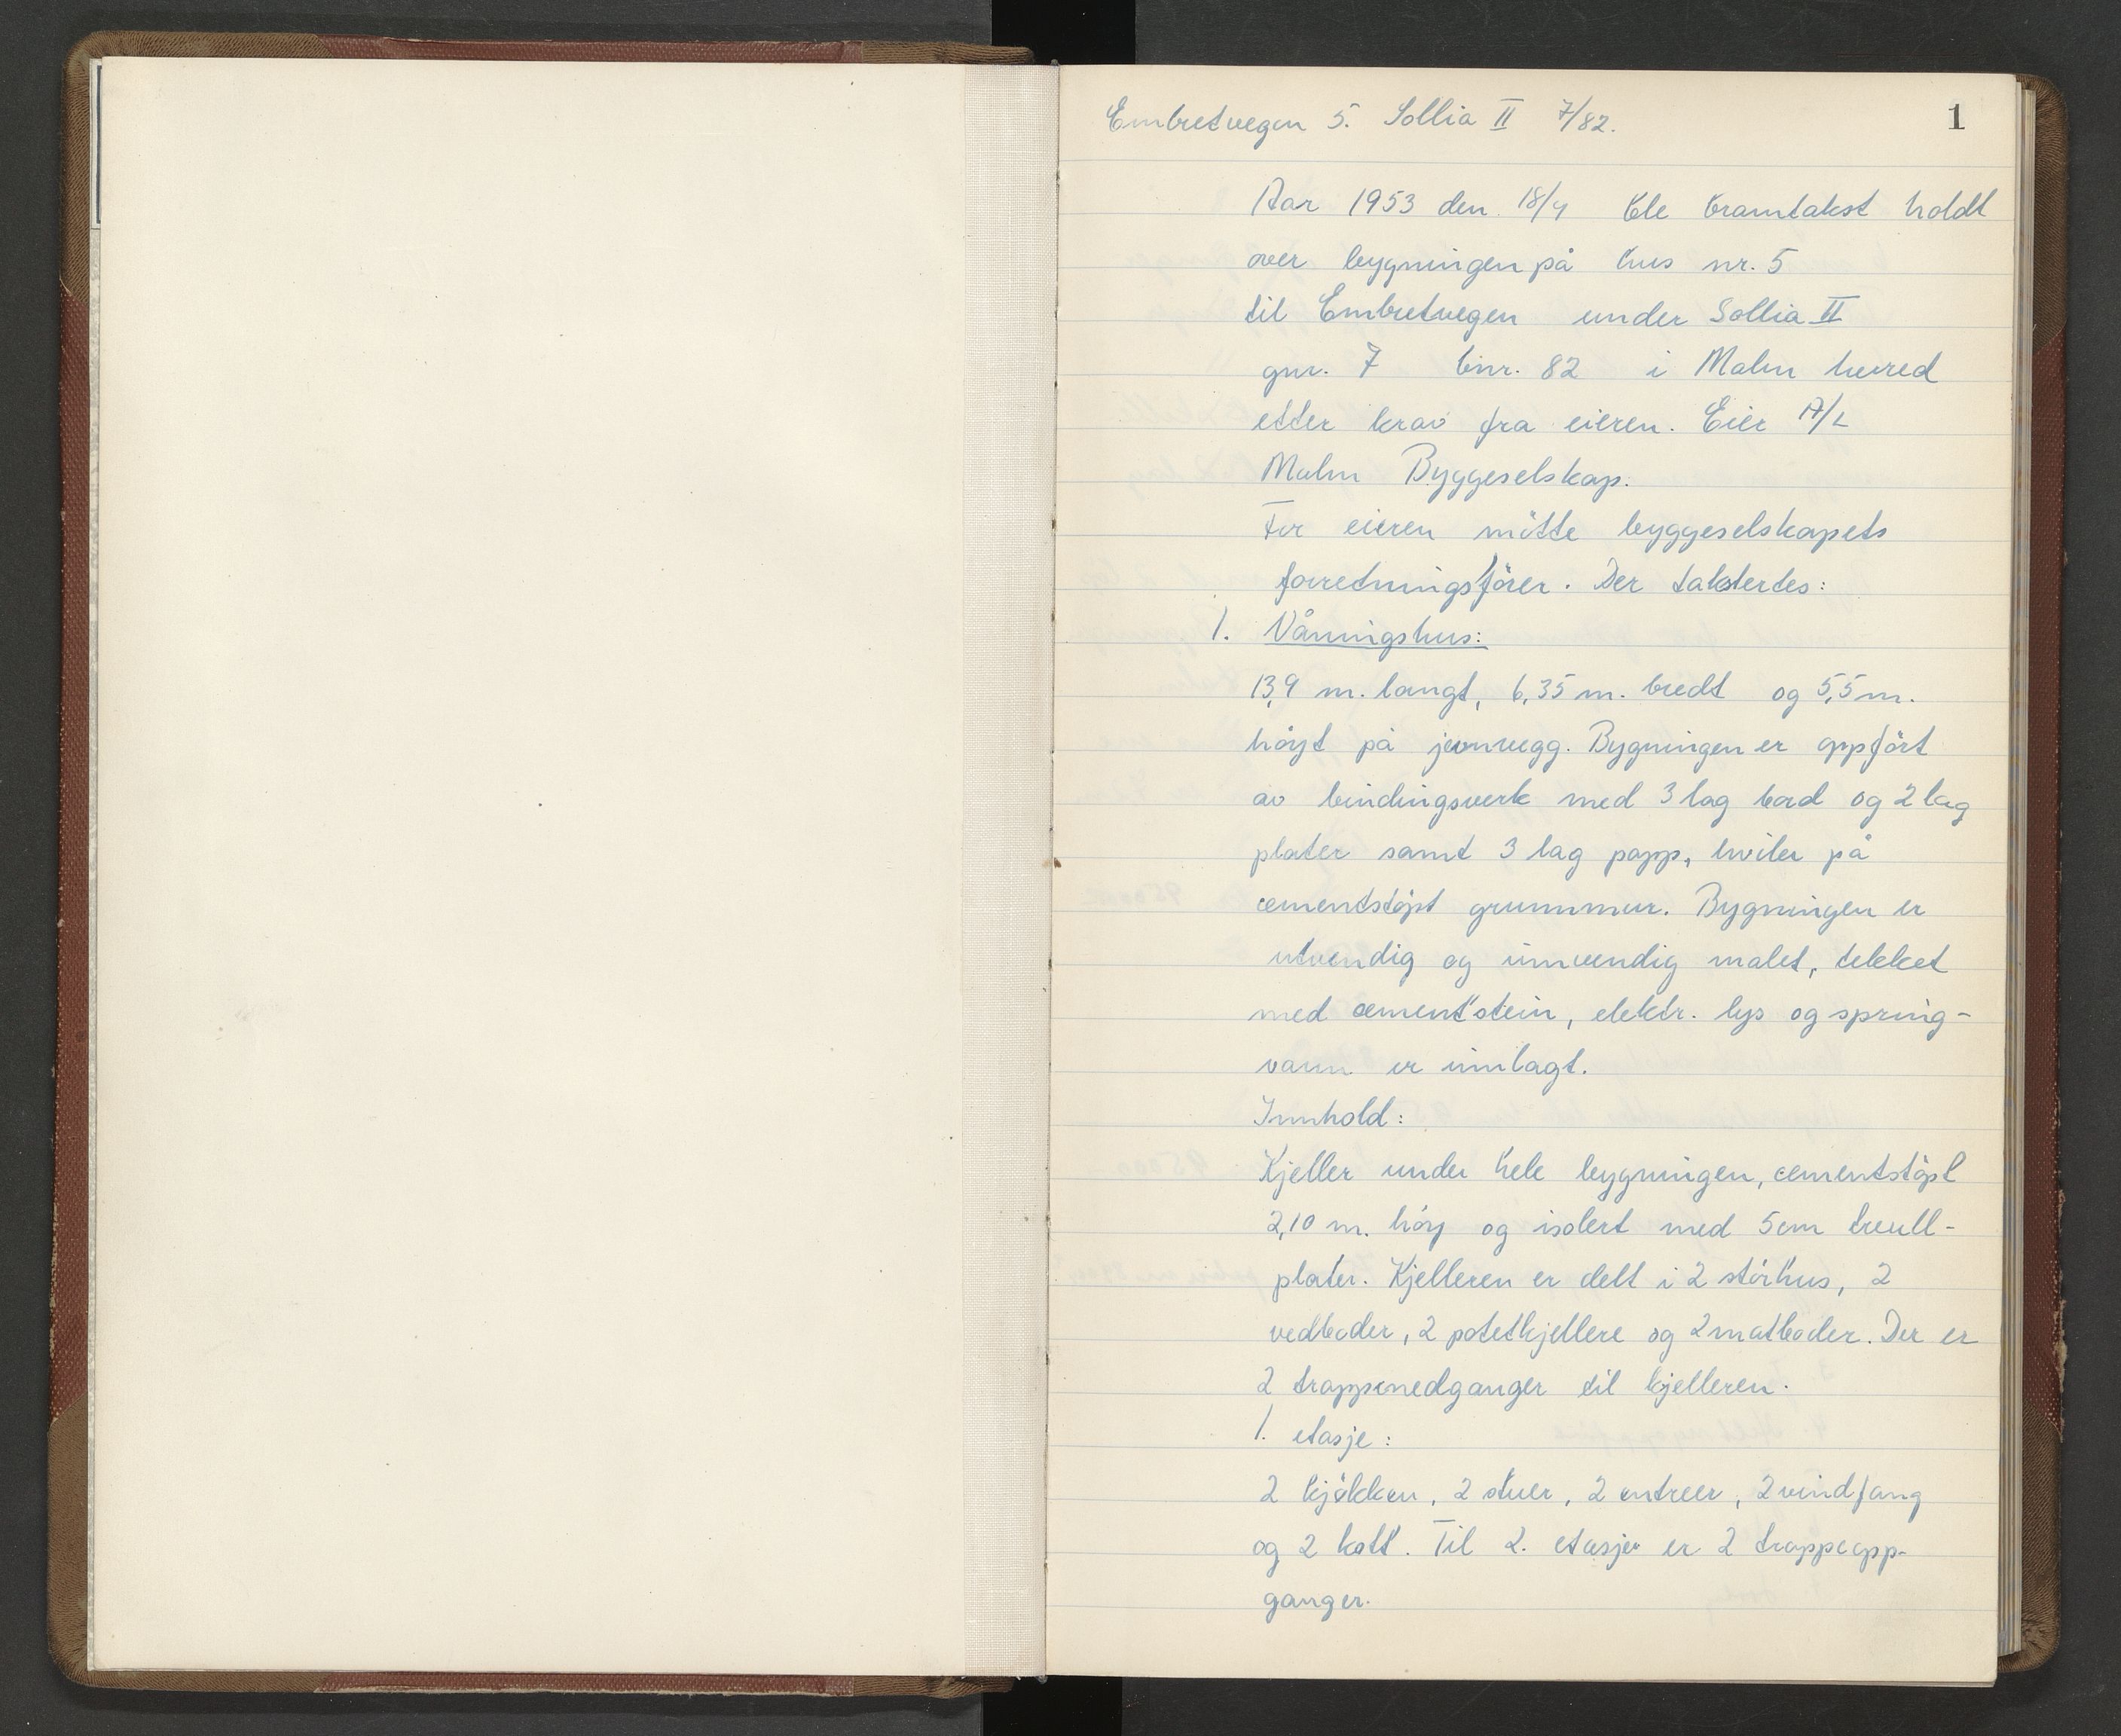 Embretvegen 5. Sollia II 7/82.
1
Aar 1953 den 18/4 ble branntakst holdt
over bygningen på hus nr. 5
til Embretvegen under Sollia II
gnr. 7 bnr. 82 i Malm herred
etter krav fra eieren. Eier A/L
Malm Byggeselskap.
For eieren mötte byggeselskapets
forretningsförer. Der takstertes:
1. Våningshus:
13,9 m. langt, 6,35 m. bredt og 5,5 m.
höyt på jevnvegg. Bygningen er oppfört
av bindingsverk med 3 lag bord og 2 lag
plater samt 3 lag papp, hviler på
cementstöpt grunnmur. Bygningen er
utvendig og innvendig malet, tekket
med cementstein, elektr. lys og spring-
vann er innlagt.
Innhold:
Kjeller under hele bygningen, cementstöpt
2,10 m. höy og isolert med 5 cm treull-
plater. Kjelleren er delt i 2 störhus, 2
vedboder, 2 potetkjellere og 2 matboder. Der er
2 trappenedganger til kjelleren.
1. etasje:
2 kjökken, 2 stuer, 2 entreer, 2 vindfang
og 2 kott. Til 2. etasje er 2 trappeopp-
ganger.